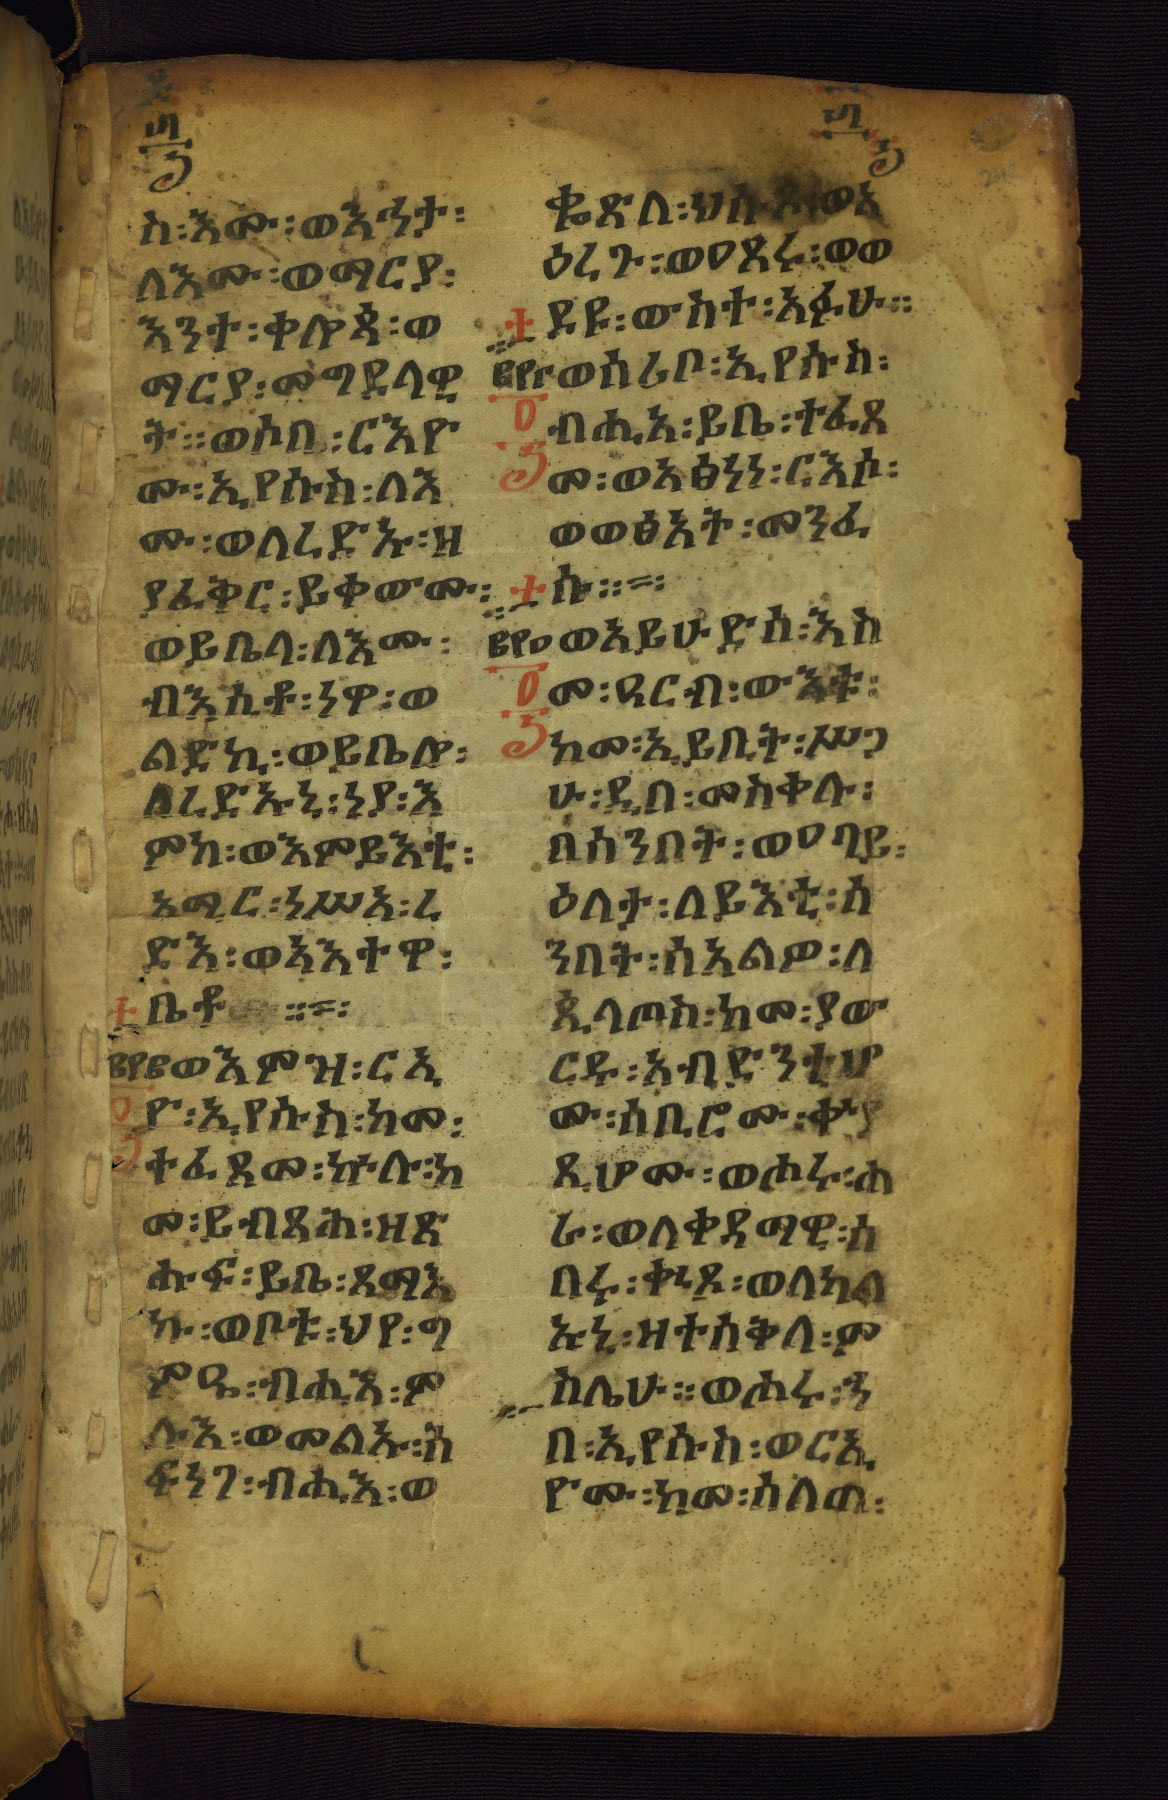 ስ፡እሙ፡ወእኅታ፡
ለእሙ፡ወማርያ፡
እንተ፡ቀሎጳ፡ወ
ማርያ፡መግደላዊ
ት፡፡ወሶበ፡ርእዮ
ሙ፡ኢየሱስ፡ለእ
ሙ፡ወለረድኡ፡ዘ
ያፈቅር፡ይቀውሙ፡
ወይቤላ፡ለእሙ፡
ብእሲቶ፡ነዋ፡ወ
ልድኪ፡ወይቤሎ፡
ለረድኡኒ፡ነያ፡እ
ምከ፡ወእምይእቲ፡
አሜር፡ነሥአ፡ረ
ድእ፡ወአእተዋ፡
ቤቶ ፡፡=፡
ወእምዝ፡ርኢ
ዮ፡ኢየሱስ፡ከመ፡
ተፈጸመ፡ኵሉ፡ከ
መ፡ይብጻሕ፡ዘጽ
ሑፍ፡ይቤ፡ጸማእ
ኩ፡ወቦቱ፡ህየ፡ግ
ምዔ፡ብሒአ፡ም
ሉእ፡ወመልኡ፡ሰ
ፍነገ፡ብሒአ፡ወ
ዕረጉ፡ወዐጸሩ፡ወወ
ደዩ፡ውስተ፡አፉሁ፡፡
ወሰሪቦ፡ኢየሱስ፡
ብሒአ፡ይቤ፡ተፈጸ
መ፡ወአፅነነ፡ርእሶ፡
ወወፅአት፡መንፈ
ሱ፡፡=፡
ወአይሁድሰ፡እስ
መ፡ዓርብ፡ውእቱ፡
ከመ፡ኢይቢት፡ሥጋ
ሁ፡ዲበ፡መስቀሉ፡
በሰንበት፡ወዐባይ፡
ዕለታ፡ለይእቲ፡ሰ
ንበት፡ሰአልዎ፡ለ
ጲላጦስ፡ከመ፡ያው
ርዱ፡አብድንቲሆ
ሙ፡ሰቢሮሙ፡ቍያ
ጺሆሙ፡ወሐሩ፡ሐ
ራ፡ወለቀዳማዊ፡ሰ
በሩ፡ቍያጾ፡ወለካል
ኡኒ፡ዘተሰቅለ፡ም
ስሌሁ፡፡ወሐሩ፡ኀ
በ፡ኢየሱስ፡ወርእ
ዮሙ፡ከመ፡ሰለጠ፡